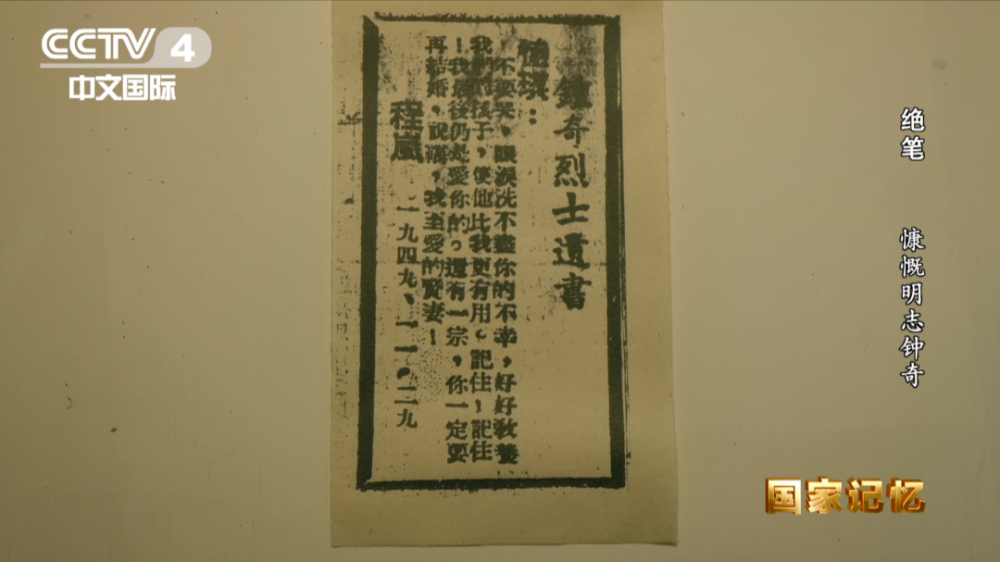 CCTV 4
中文国际
绝笔 慷慨明志钟奇
鐘奇烈士遺書
德琪：
不要哭，眼淚洗不盡你的不幸，好好敎養
我們的孩子，使他比我更有用。記住，記住
！我最後仍是愛你的。還有一宗，你一定要
再結婚，我至愛的賢妻！
程嵐
一九四九、一一、二九
国家记忆